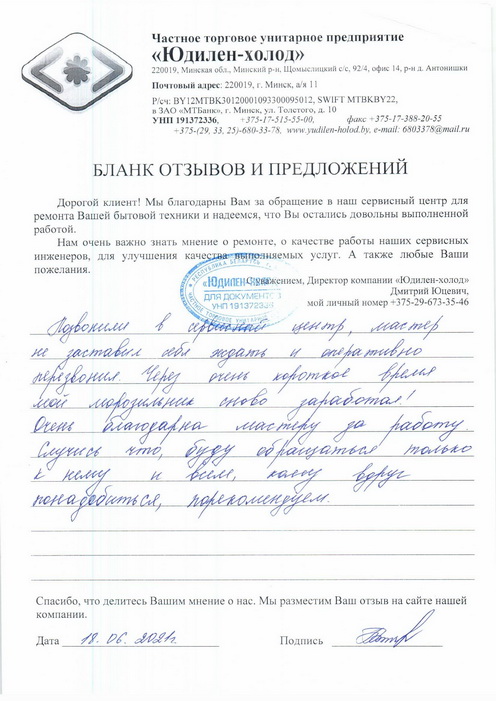 Частное торговое унитарное предприятие
«Юдилен-холод»
220019, Минская обл., Минский р-н, Щомыслицкий с/с, 92/4, офис 14, р-н д. Антонишки
Почтовый адрес: 220019, г. Минск, а/я 11
Р/сч: BY12MTBK30120001093300095012, SWIFT MTBKBY22,
в ЗАО «МТБанк», г. Минск, ул. Толстого, д. 10
УНП 191372336, +375-17-515-55-00, факс +375-17-388-20-55
+375-(29, 33, 25)-680-33-78, www.yudilen-holod.by, e-mail: 6803378@mail.ru
БЛАНК ОТЗЫВОВ И ПРЕДЛОЖЕНИЙ
Дорогой клиент! Мы благодарны Вам за обращение в наш сервисный центр для
ремонта Вашей бытовой техники и надеемся, что Вы остались довольны выполненной
работой.
Нам очень важно знать мнение о ремонте, о качестве работы наших сервисных
инженеров, для улучшения качества выполняемых услуг. А также любые Ваши
пожелания.
С уважением, Директор компании «Юдилен-холод»
Дмитрий Юцевич,
мой личный номер +375-29-673-35-46
РЕСПУБЛИКА БЕЛАРУСЬ
«Юдилен-
ДЛЯ ДОКУМЕНТОВ
УНП 191372336
Позвонили в сервисный центр, мастер
не заставил себя ждать и оперативно
перезвонил. Через очень короткое время
мой морозильник снова заработал!
Очень благодарна мастеру за работу.
Случись что, буду обращаться только
к нему и всем, кому вдруг
понадобиться, порекомендуем.
Спасибо, что делитесь Вашим мнение о нас. Мы разместим Ваш отзыв на сайте нашей
компании.
Дата 18.06.2021г. Подпись